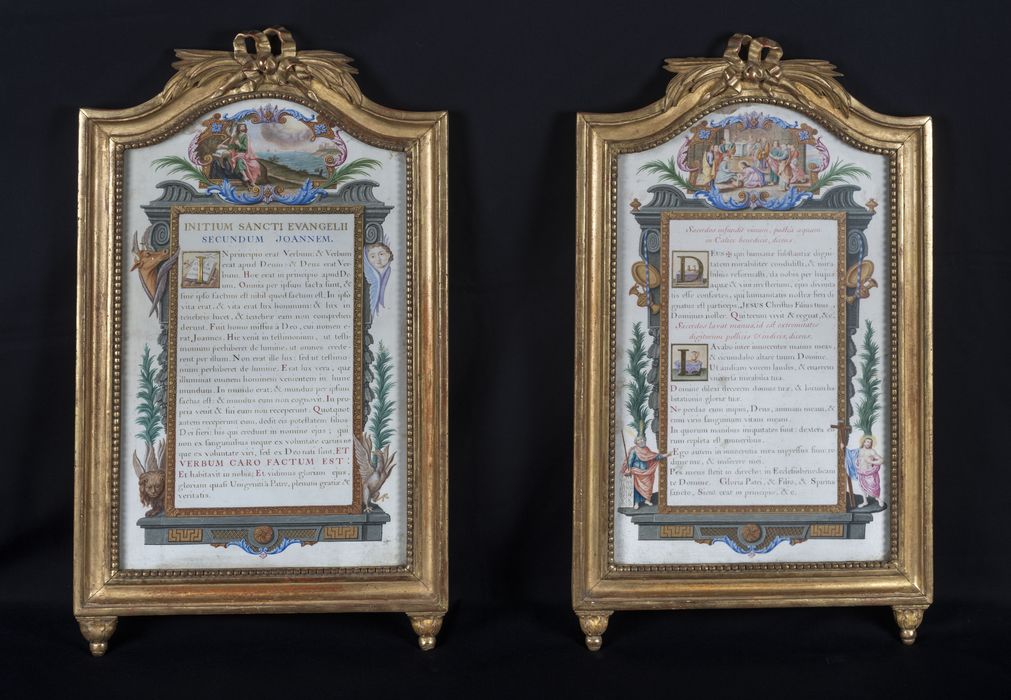 INITIUM SANCTI EVANGELII
SECUNDUM JOANNEM.
IN principio erat Verbum: & Verbum
erat apud Deum: & Deus erat Ver-
bum. Hoc erat in principio apud De-
um. Omnia per ipsum facta sunt, &
sine ipso factum est nihil quod factum est. In ipso
vita erat, & vita erat lux hominum: & lux in
tenebris lucet, & tenebræ eam non comprehen-
derunt. Fuit homo missus à Deo, cui nomen e-
rat Joannes. Hic venit in testimonium, ut testi-
monium perhiberet de lumine, ut omnes crede-
rent per illum. Non erat ille lux: sed ut testimo-
nium perhiberet de lumine. Erat lux vera, quæ
illuminat omnem hominem venientem in hunc
mundum. In mundo erat, & mundus per ipsum
factus est: & mundus eum non cognovit. In pro-
pria venit & sui eum non receperunt. Quotquot
autem receperunt eum, dedit eis potestatem filios
Dei fieri: his qui credunt in nomine ejus: qui
non ex sanguinibus neque ex voluntate carnis ne-
que ex voluntate viri, sed ex Deo nati sunt. ET
VERBUM CARO FACTUM EST:
Et habitavit in nobis; Et vidimus gloriam ejus,
gloriam quasi Unigeniti à Patre, plenum gratiæ &
veritatis.
Sacerdos infundit vinum, posteà aquam
in Calice benedicit, dicens.
DEUS ✠ qui humanæ substantiæ digni-
tatem mirabiliter condidisti, & mira-
bilius reformasti, da nobis per hujus
aquæ & vini mysterium, ejus divinita-
tis esse consortes, qui humanitatis nostræ fieri di-
gnatus est particeps, JESUS Christus Filius tuus,
Dominus noster: Qui tecum vivit & regnat, &c.
Sacerdos lavat manus, id est extremitates
digitorum pollicis & indicis, dicens.
LAvabo inter innocentes manus meas,
& circumdabo altare tuum Domine.
Ut audiam vocem laudis, & enarrem
universa mirabilia tua.
Domine dilexi decorem domus tuæ, & locum ha-
bitationis gloriæ tuæ.
Ne perdas cum impiis, Deus, animam meam, &
cum viris sanguinum vitam meam.
In quorum manibus iniquitates sunt: dextera eo-
rum repleta est muneribus.
Ego autem in innocentia mea ingressus sum: re-
dime me, & miserere mei.
Pes meus stetit in directo: in Ecclesiis benedicam
te Domine. Gloria Patri, & Filio, & Spiritui
sancto, Sicut erat in principio, & c.